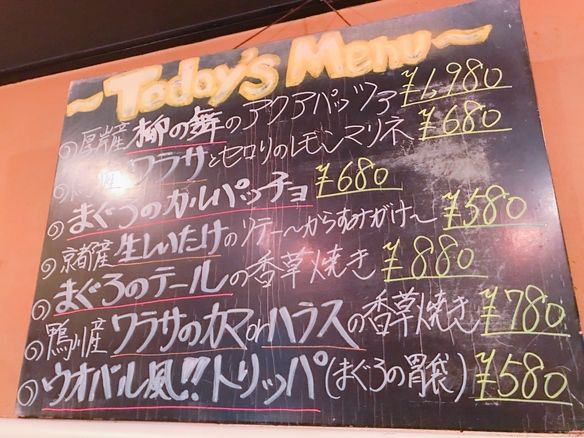 ~Today's Menu~
◎厚岸産 柳の舞のアクアパッツァ ¥1,980
産 ワラサとセロリのレモンマリネ ¥680
◎まぐろのカルパッチョ ¥680
◎京都産 生しいたけのソテー~からすみがけ~ ¥580
◎まぐろのテールの香草焼き ¥880
◎鴨川産 ワラサのカマorハラスの香草焼き ¥780
◎ウオバル風!!トリッパ(まぐろの胃袋) ¥580